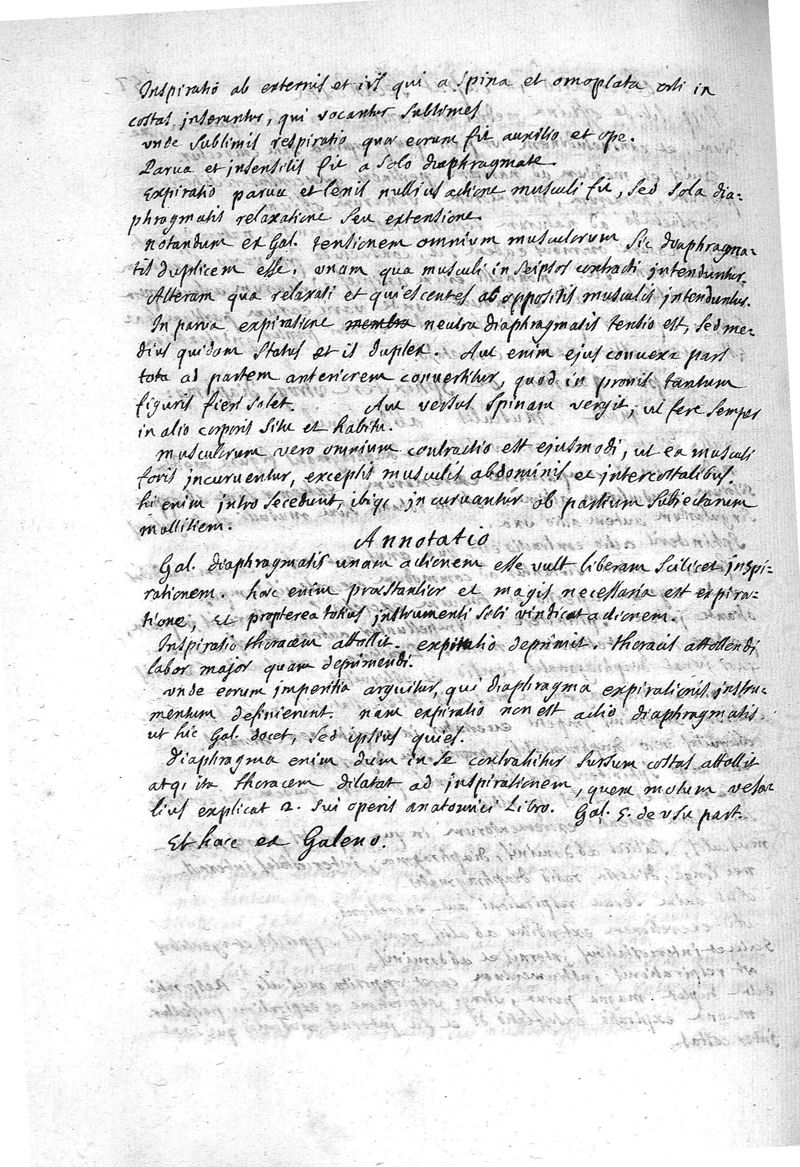 Inspiratio ab externis et iis qui a spina et omoplata orti in
costas inseruntur, qui vocantur sublimes
unde sublimis respiratio quae eorum fit auxilio et ope.
Parva et insensilis fit a solo diaphragmate
Expiratio parva et lenis nullius actione musculi fit, sed sola dia-
phragmatis relaxatione seu extensione.
notandum ex Gal. tensionem omnium musculorum sic diaphragma-
tis duplicem esse, unam qua musculi in seipsos contracti intenduntur.
Alteram qua relaxati et quiescentes ab oppositis musculis intenduntur.
In parva expiratione membra neutra diaphragmatis tensio est, sed me-
dius quidam status et is duplex. Aut enim ejus convexa pars
tota ad partem anteriorem convertitur, quod in pronis tantum
figuris fieri solet. Aut versus spinam vergit, ut fere semper
in alio corporis situ et habitu.
musculorum vero omnium contractio est ejusmodi, ut ea musculi
foris incurventur, exceptis musculis abdominis et intercostalibus.
hi enim intro secedunt, ibiq; incurvantur ob partium subjectarum
mollitiem.
Annotatio
Gal. diaphragmatis unam actionem esse vult liberam scilicet inspi-
rationem. haec enim praestantior et magis necessaria est expira-
tione, et propterea totius instrumenti sibi vindicat actionem.
Inspiratio thoracem attollit. expiratio deprimit. thoracis attollendi
labor major quam deprimendi.
unde eorum imperitia arguitur, qui diaphragma expirationis instru-
mentum definierunt. nam expiratio non est actio diaphragmatis
ut hic Gal. docet, sed ipsius quies.
Diaphragma enim dum in se contrahitur sursum costas attollit
atq; ita thoracem dilatat ad inspirationem, quem motum vesa-
lius explicat 2. sui operis anatomici libro. Gal. 5. de usu part.
Et haec ex Galeno.